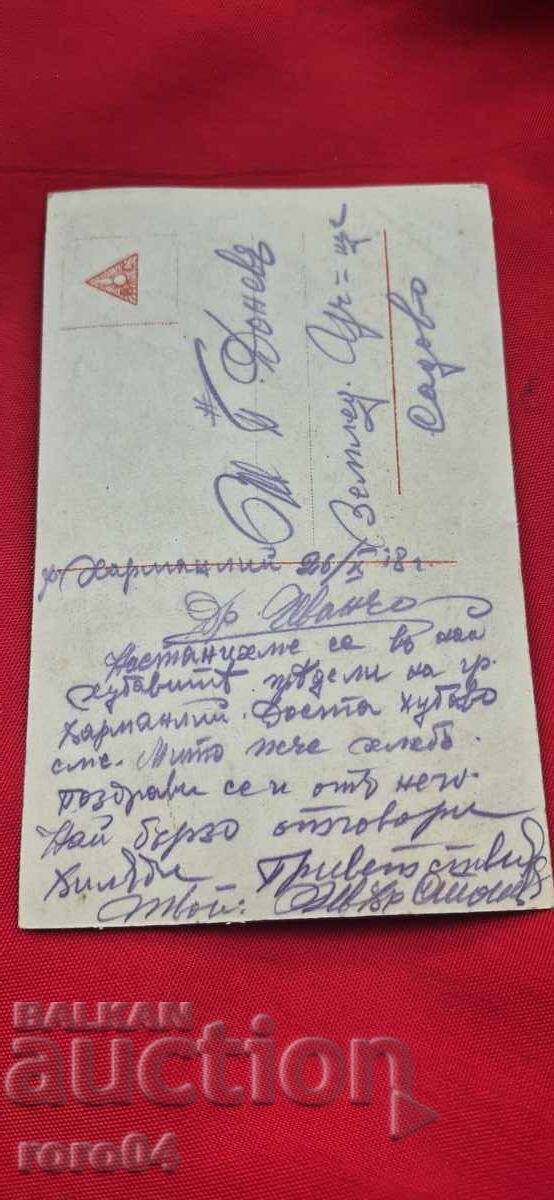 Б. Доневъ
Землед. Уч=ще
Садово
Харманлий 26/X 18 г.
Др. Иванчо
Настанихме се въ най
хубавитѣ отдели на гр.
Харманлий. Доста хубаво
сме. Мито яче хлебъ.
Поздрави се и отъ него.
Най бързо отговори
Хиляди Приветствия
Твой:
BALKAN
auction
roro04